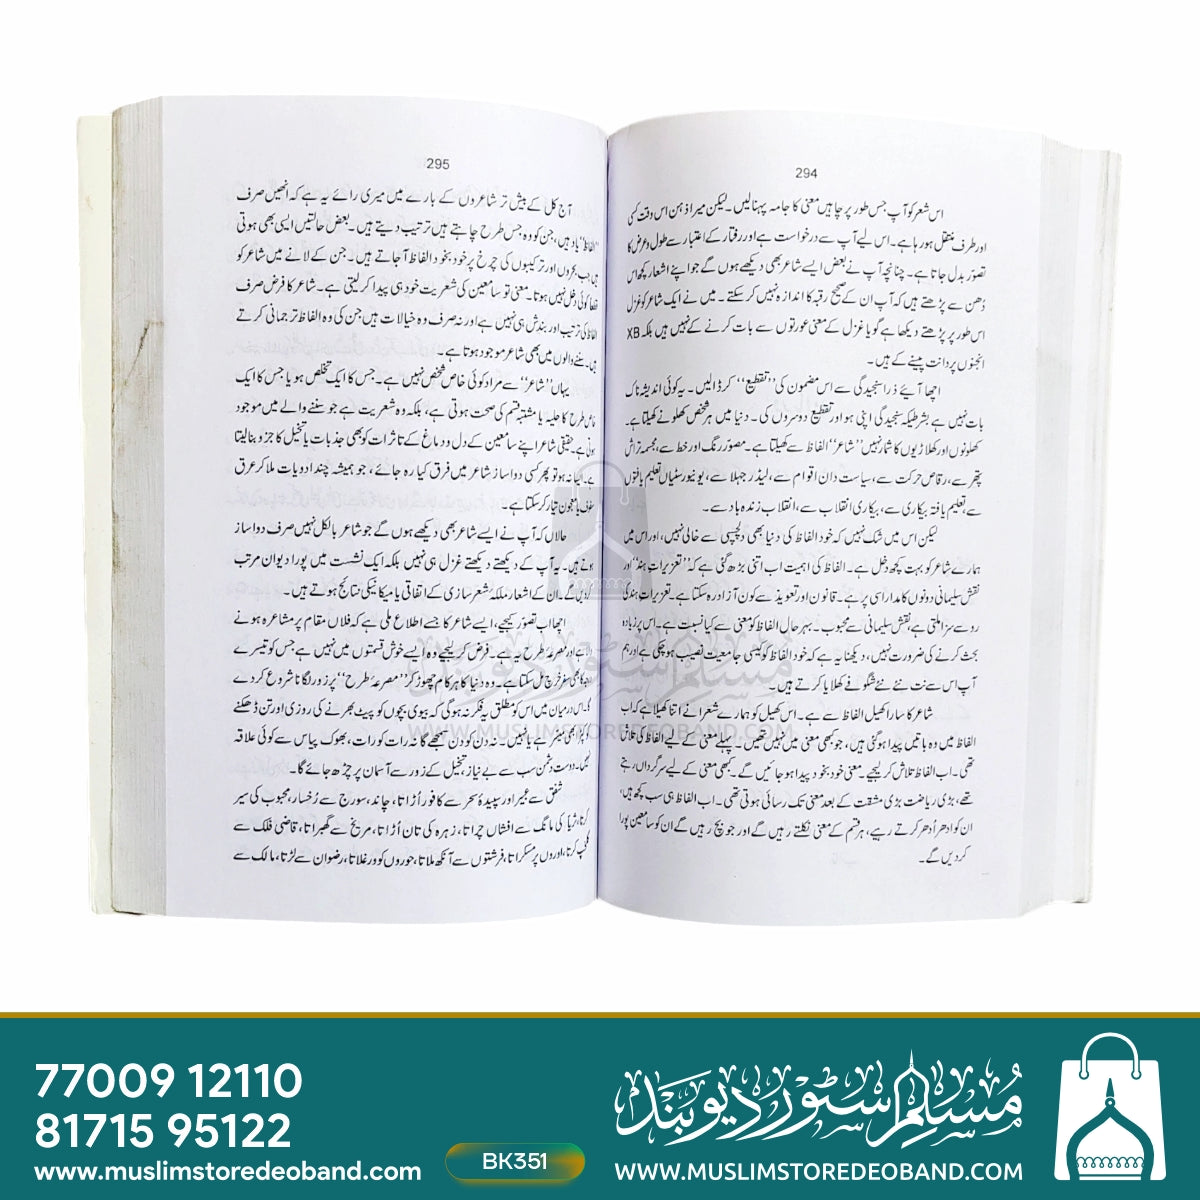 294
اس شعر کو آپ جس طور پر چاہیں معنی کا جامہ پہنا لیں۔ لیکن میرا ذہن اس وقت کسی
اور طرف منتقل ہو رہا ہے۔ اس لیے آپ سے درخواست ہے اور رفتار کے اعتبار سے طول و عرض کا
تصور بدل جاتا ہے۔ چنانچہ آپ نے بعض ایسے شاعر بھی دیکھے ہوں گے جو اپنے اشعار کچھ اس
دُھن سے پڑھتے ہیں کہ آپ ان کے صحیح رقبہ کا اندازہ نہیں کر سکتے۔ میں نے ایک شاعر کو غزل
اس طور پر پڑھتے دیکھا ہے گویا غزل کے معنی عورتوں سے بات کرنے کے نہیں ہیں بلکہ XB
انجنوں پر دانت پیسنے کے ہیں۔
اچھا آیئے ذرا سنجیدگی سے اس مضمون کی ’’تقطیع‘‘ کر ڈالیں۔ یہ کوئی اندیشہ ناک
بات نہیں ہے بشرطیکہ سنجیدگی اپنی ہو اور تقطیع دوسروں کی۔ دنیا میں ہر شخص کھلونے کھیلتا ہے۔
کھلونوں اور کھلاڑیوں کا شمار نہیں ’’شاعر‘‘ الفاظ سے کھیلتا ہے۔ مصوّر رنگ اور خط سے، مجسمہ تراش
پتھر سے، رقاص حرکت سے، سیاست داں اقوام سے، لیڈر جہلا سے، یونیورسٹیاں تعلیم یافتوں
سے، تعلیم یافتہ بیکاری سے، بیکاری انقلاب سے، انقلاب زندہ باد سے۔
لیکن اس میں شک نہیں کہ خود الفاظ کی دنیا بھی دلچسپی سے خالی نہیں، اور اس میں
ہمارے شاعر کو بہت کچھ دخل ہے۔ الفاظ کی اہمیت اب اتنی بڑھ گئی ہے کہ ’تعزیرات ہند‘ اور
نقش سلیمانی دونوں کا مدار اسی پر ہے۔ قانون اور تعویذ سے کون آزاد رہ سکتا ہے۔ تعزیرات ہند کی
رو سے سزا ملتی ہے، نقش سلیمانی سے محبوب۔ بہر حال الفاظ کو معنی سے کیا نسبت ہے۔ اس پر زیادہ
بحث کرنے کی ضرورت نہیں، دیکھنا یہ ہے کہ خود الفاظ کو کیسی جامعیت نصیب ہو چکی ہے اور ہم
آپ اس سے نت نئے نئے شگوفے کھلایا کرتے ہیں۔
شاعر کا سارا کھیل الفاظ سے ہے۔ اس کھیل کو ہمارے شعرا نے اتنا کھیلا ہے کہ اب
الفاظ میں وہ باتیں پیدا ہو گئی ہیں، جو کبھی معنی میں نہیں تھیں۔ پہلے معنی کے لیے الفاظ کی تلاش
تھی۔ اب الفاظ تلاش کر لیجیے۔ معنی خود بخود پیدا ہو جائیں گے۔ کبھی معنی کے لیے سرگرداں رہتے
تھے، بڑی ریاضت بڑی مشقت کے بعد معنی تک رسائی ہوتی تھی۔ اب الفاظ ہی سب کچھ ہیں،
ان کو ادھر اُدھر کرتے رہیے، ہر قسم کے معنی نکلتے رہیں گے اور جو بچ رہیں گے ان کو سامعین پورا
کر دیں گے۔
295
آج کل کے بیش تر شاعروں کے بارے میں میری رائے یہ ہے کہ انھیں صرف
’’الفاظ‘‘ یاد ہیں، جن کو وہ جس طرح چاہتے ہیں ترتیب دیتے ہیں۔ بعض حالتیں ایسی بھی ہوتی
ہیں جب بحروں اور ترکیبوں کی چرخ پر خود بخود الفاظ آ جاتے ہیں۔ جن کے لانے میں شاعر کو
قطعاً کوئی دخل نہیں ہوتا۔ معنی تو سامعین کی شعریت خود ہی پیدا کر لیتی ہے۔ شاعر کا فرض صرف
الفاظ کی ترتیب اور بندش ہی نہیں ہے اور نہ صرف وہ خیالات ہیں جن کی وہ الفاظ ترجمانی کرتے
ہیں۔ سننے والوں میں بھی شاعر موجود ہوتا ہے۔
یہاں ’’شاعر‘‘ سے مراد کوئی خاص شخص نہیں ہے۔ جس کا ایک تخلص ہو یا جس کا ایک
خاص طرح کا حلیہ یا مشتبہ قسم کی صحت ہوتی ہے، بلکہ وہ شعریت ہے جو سننے والے میں موجود
ہوتی ہے۔ حقیقی شاعر اپنے سامعین کے دل و دماغ کے تاثرات کو بھی جذبات یا تخیل کا جزو بنا لیتا
ہے۔ ایسا نہ ہو تو پھر کسی دوا ساز شاعر میں فرق کیا رہ جائے، جو ہمیشہ چند ادویات ملا کر عرق
سفوف یا معجون تیار کر سکتا ہے۔
حالاں کہ آپ نے ایسے شاعر بھی دیکھے ہوں گے جو شاعر بالکل نہیں صرف دوا ساز
ہوتے ہیں۔ یہ آپ کے دیکھتے دیکھتے غزل ہی نہیں بلکہ ایک نشست میں پورا دیوان مرتب
کر دیں گے۔ ان کے اشعار ملکۂ شعر سازی کے اتفاقی یا میکانیکی نتائج ہوتے ہیں۔
اچھا اب تصوّر کیجیے، ایسے شاعر کا جسے اطلاع ملی ہے کہ فلاں مقام پر مشاعرہ ہونے
والا ہے اور مصرعۂ طرح یہ ہے۔ فرض کر لیجیے وہ ایسے خوش قسمتوں میں نہیں ہے جس کو تیسرے
کا بھی سفر خرچ مل سکتا ہے۔ وہ دنیا کا ہر کام چھوڑ کر ’’مصرعۂ طرح‘‘ پر زور لگانا شروع کر دے
گا۔ اس درمیان میں اس کو مطلق یہ فکر نہ ہو گی کہ بیوی بچوں کو پیٹ بھرنے کی روزی اور تن ڈھکنے
کا کپڑا بھی میسر ہے یا نہیں۔ نہ دن کو دن سمجھے گا نہ رات کو رات، بھوک پیاس سے کوئی علاقہ
دوست دشمن سب سے بے نیاز، تخیل کے زور سے آسمان پر چڑھ جائے گا۔
شفق سے عبیر اور سپیدۂ سحر سے کافور اُڑاتا، چاند، سورج سے رُخسار، محبوب کی سیر
کرتا، ثریا کی مانگ سے افشاں چراتا، زہرہ کی تان اُڑاتا، مریخ سے گھبراتا، قاضی فلک سے
کرتا، اوروں پر مسکراتا، فرشتوں سے آنکھ ملاتا، حوروں کو ورغلاتا، رضوان سے لڑتا، مالک سے
مسلم سٹور دیوبند
WWW.MUSLIMSTOREDEOBAND.COM
77009 12110
81715 95122
www.muslimstoredeoband.com
BK351
مسلم سٹور دیوبند
WWW.MUSLIMSTOREDEOBAND.COM